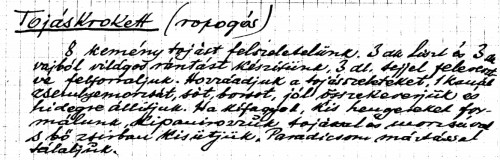 Tojáskrokett (ropogós)
8 kemény tojást felszeletelünk. 3 dk liszt és 3 dk
vajból világos rántást készítünk, 3 dl. tejjel felereszt
ve felforraljuk. Hozzáadjuk a tojásszeleteket, 1 kanál
zsemlyemorzsát, sót, borsot, jól összekeverjük és
hidegre állítjuk. Ha kifagyott, kis hengereket for
málunk, kipanírozzuk tojással és morzsával
s bő zsírban kisütjük. Paradicsom mártással
tálaljuk.